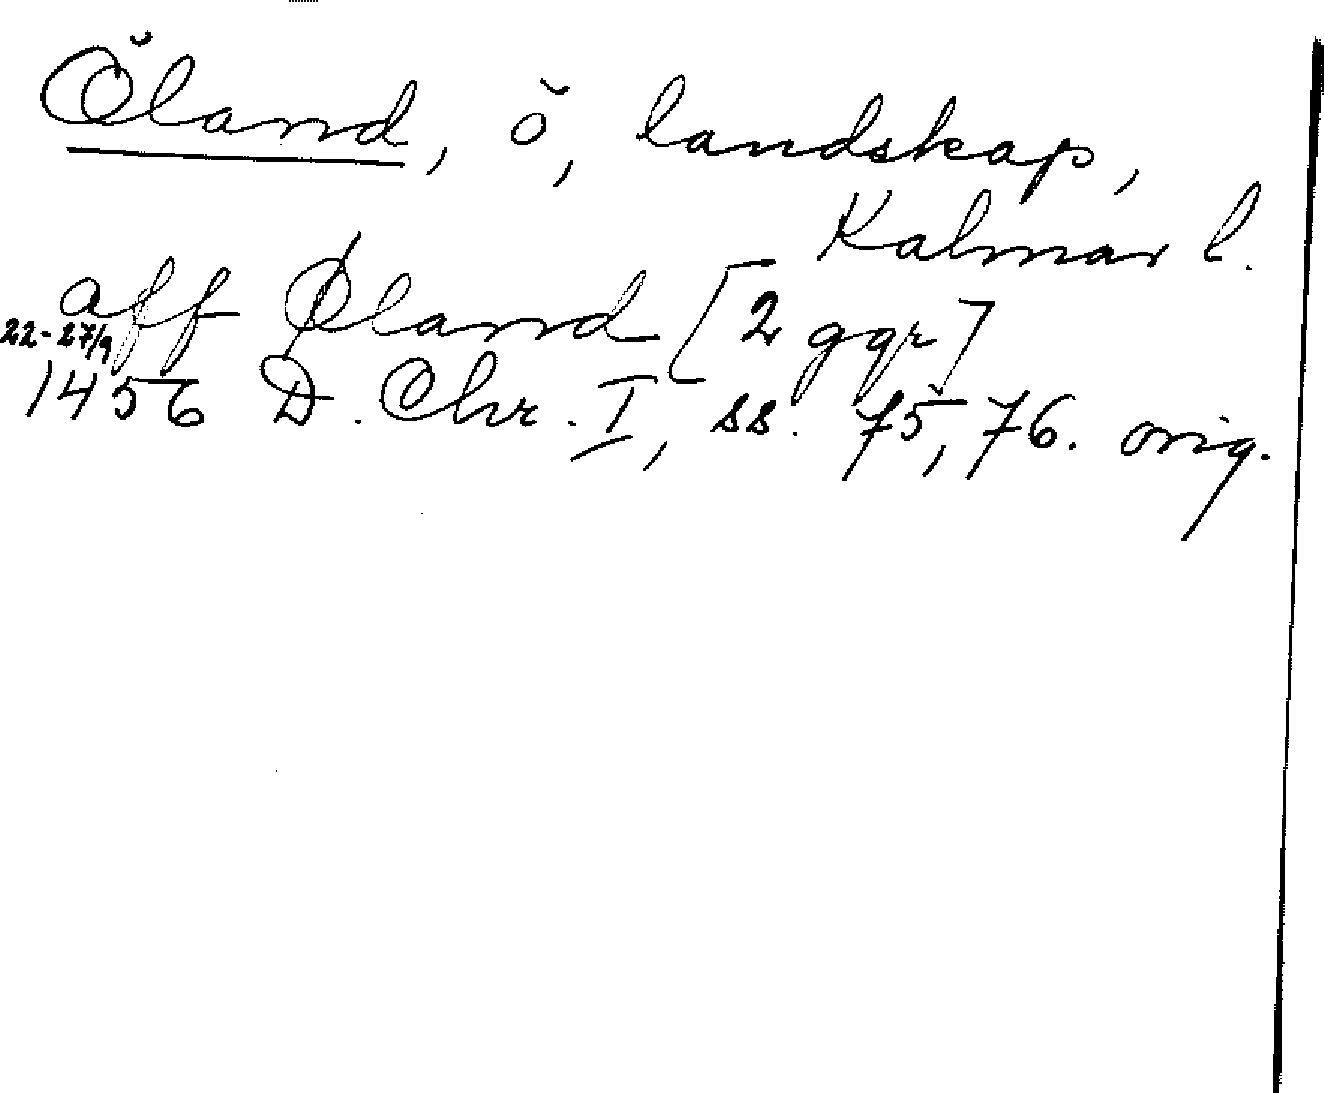 Öland, ö, landskap,
Kalmar l.
aff Øland [2 ggr]
22-27/9
1456 D. Chr. I, ss. 75, 76. orig.